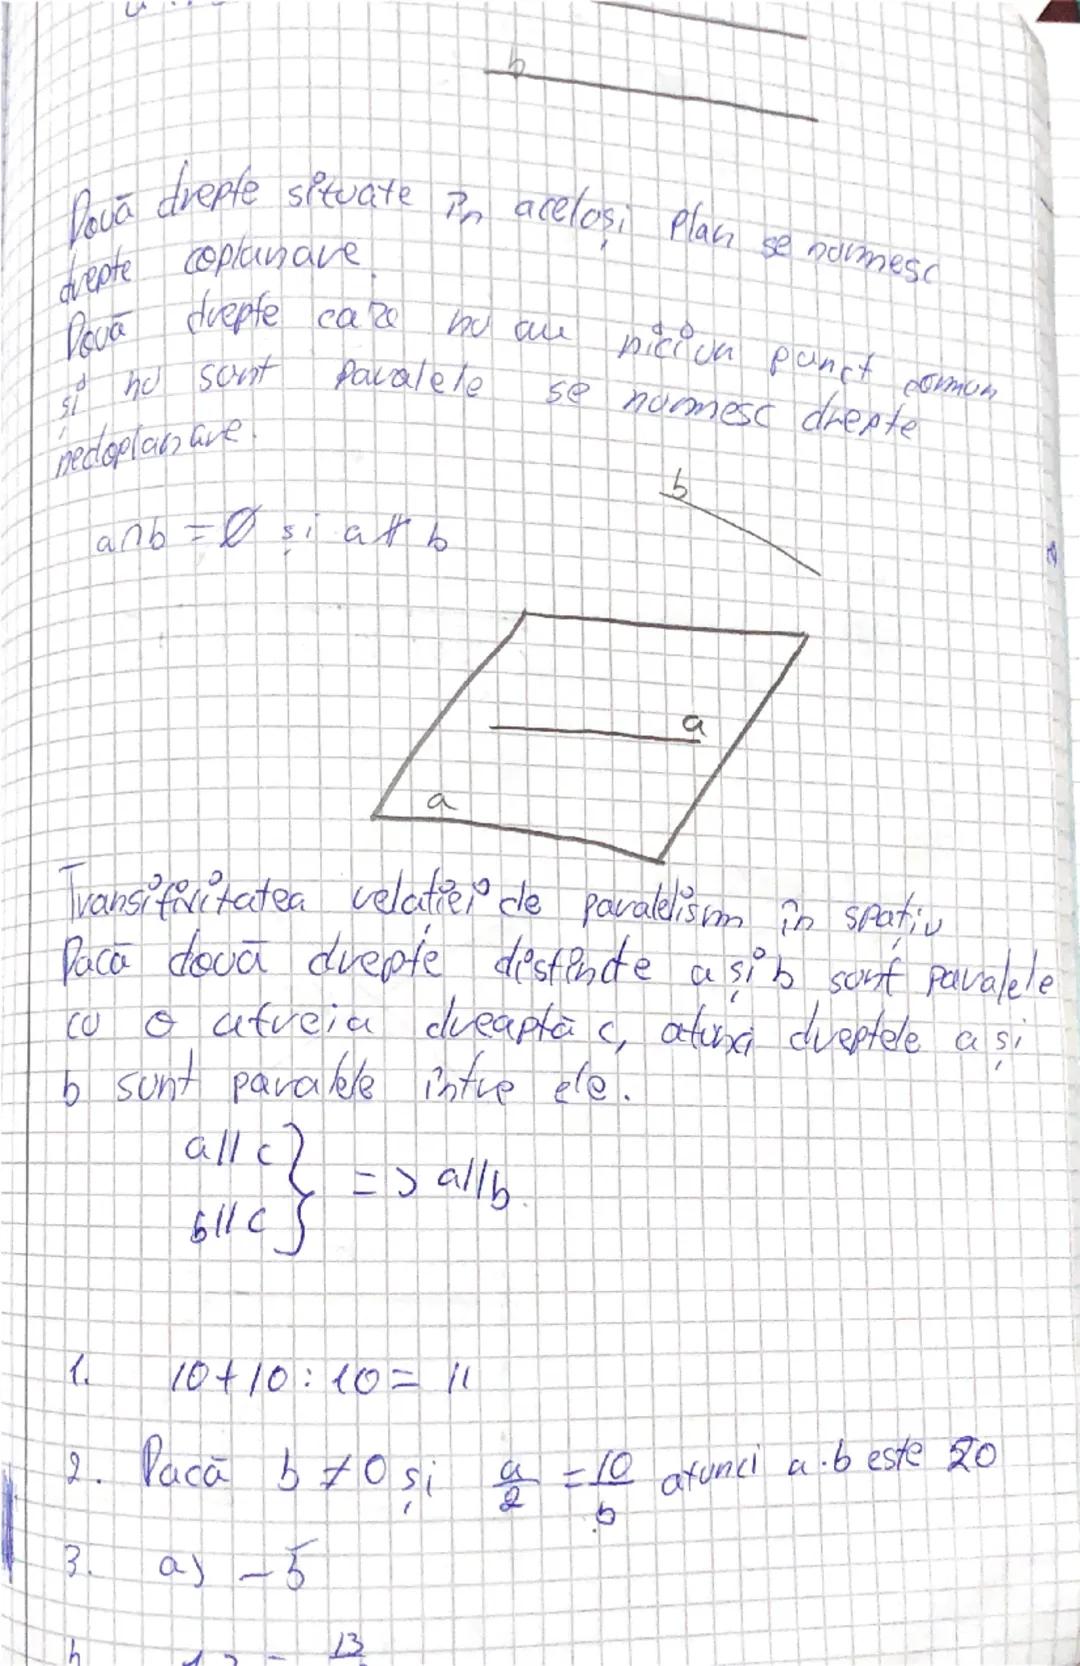 b
Două drepte situate în același plan se numesc
drepte coplanare.
Două drepte care nu au niciun punct comun
și nu sunt paralele se numesc drepte
necoplanare.
b
a∩b = Ø și a ∦ b
a
a
Transitivitatea relației de paralelism în spațiu
Dacă două drepte distincte a și b sunt paralele
cu o a treia dreaptă c, atunci dreptele a și
b sunt paralele între ele.
a || c
b || c } => a||b.
1. 10+10:10= 11
2. Dacă b ≠ 0 și a/2 = 10/b atunci a·b este 20
3. a) -5
13